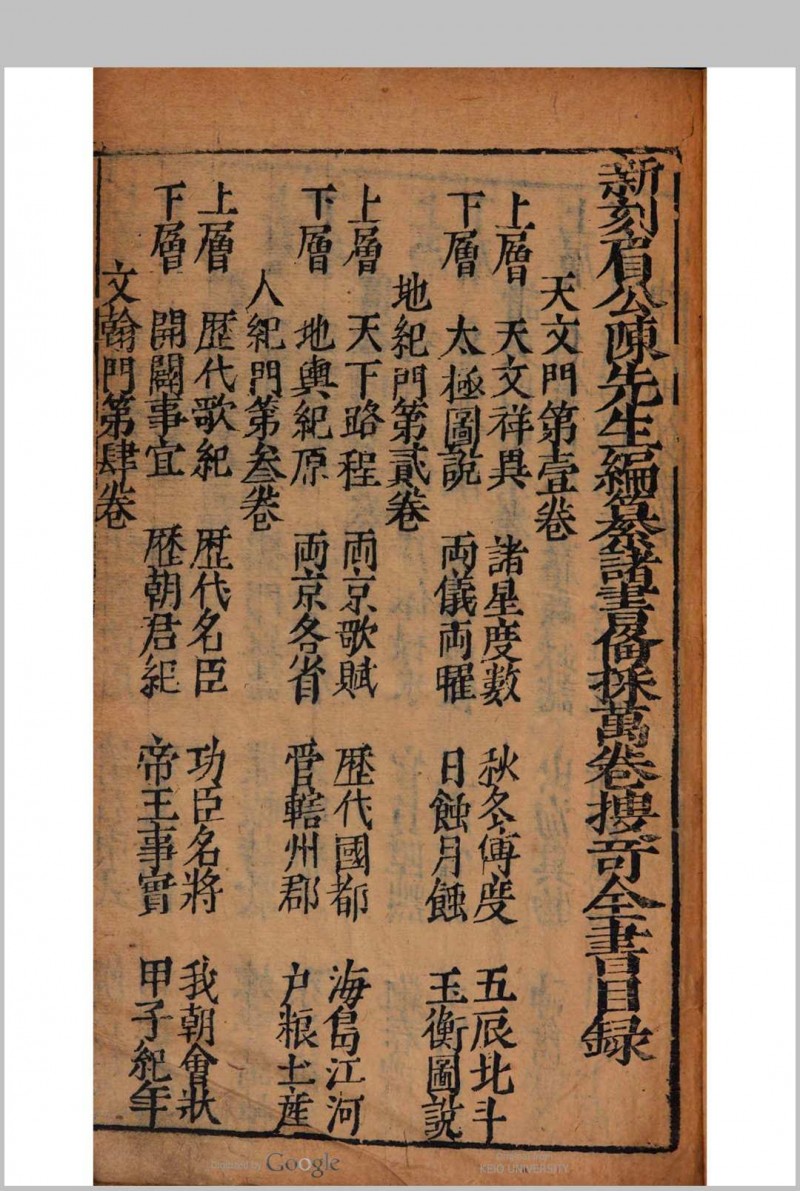 新刻眉公陳先生編纂諸書備採萬卷搜奇全書目録
天文門第壹卷
上層 天文祥異 諸星度數 秋冬傳度 五辰北斗
下層 太極圖說 両儀両曜 日蝕月蝕 玉衡圖説
地紀門第貳卷
上層 天下路程 両京歌賦 歷代國都 海島江河
下層 地輿紀原 両京各省 管轄州郡 户粮土産
人紀門第叁卷
上層 歷代歌紀 歷代名臣 功臣名將 我朝會狀
下層 開闢事宜 歷朝君紀 帝王事實 甲子紀年
文翰門第肆卷
Digitized by Google
KEIO UNIVERSITY